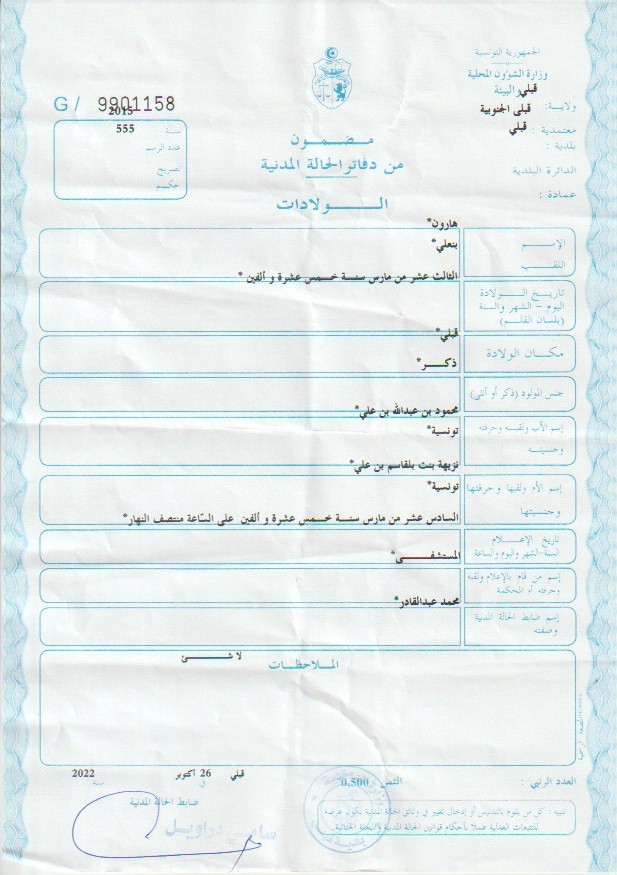 الجمهورية التونسية
وزارة الشؤون المحلية
والبيئة
ولاية: قبلي
معتمدية: قبلى الجنوبية
بلدية: قبلي
الدائرة البلدية
عمادة:
G / 9901158
سنة 2015
عدد الرسم 555
تصريح
حكم
مضمون
من دفاتر الحالة المدنية
الولادات
هارون*
الإسم
بنعلي*
اللقب
الثالث عشر من مارس سنة خمس عشرة و ألفين *
تاريخ الولادة
اليوم - الشهر والسنة
(بلسان القلم)
قبلي*
مكان الولادة
ذكر*
جنس المولود (ذكر أو أنثى)
محمود بن عبدالله بن علي*
إسم الأب ولقبه وحرفته
تونسية*
وجنسيته
نزيهة بنت بلقاسم بن علي*
إسم الأم ولقبها وحرفتها
تونسية*
وجنسيتها
السادس عشر من مارس سنة خمس عشرة و ألفين على السّاعة منتصف النهار*
تاريخ الإعلام
السنة-الشهر واليوم والساعة
المستشفى*
إسم من قام بالإعلام ولقبه
وحرفته أو المحكمة
محمد عبدالقادر*
إسم ضابط الحالة المدنية
وصفته
لا شئ
الملاحظات
قبلي في 26 أكتوبر سنة 2022
الثمن 0.500
العدد الرتبي:
ضابط الحالة المدنية
سامي دراويل
تنبيه: كل من يقوم بالتدليس أو إدخال تغيير في وثائق الحالة المدنية يكون عرضة
للتتبعات العدلية عملا بأحكام قوانين الحالة المدنية والمجلة الجنائية.